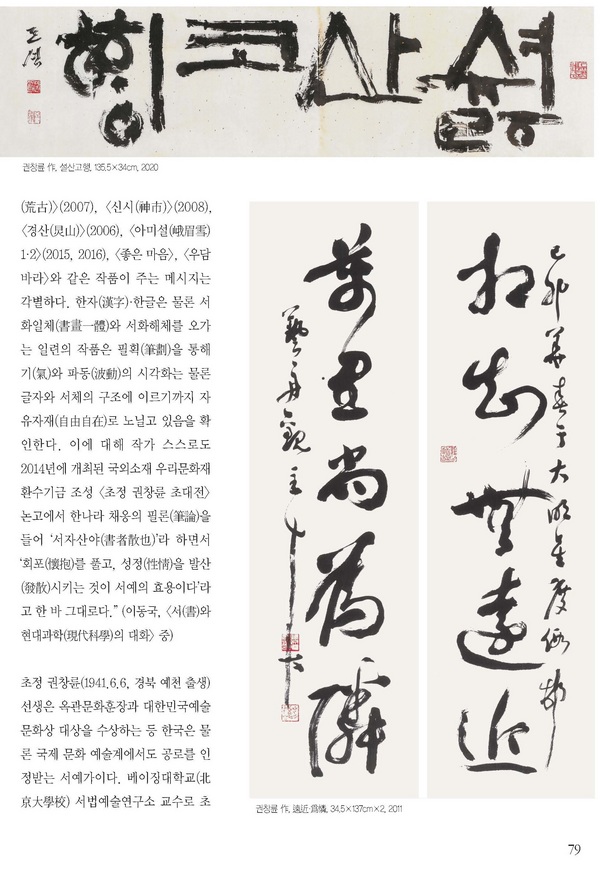 권창륜 作, 설산고행, 135.5×34cm, 2020
(荒古)〉(2007), 〈신시(神市)〉(2008),
〈경산(炅山)〉(2006), 〈아미설(峨眉雪)
1·2〉(2015, 2016), 〈좋은 마음〉, 〈우담
바라〉와 같은 작품이 주는 메시지는
각별하다. 한자(漢字)·한글은 물론 서
화일체(書畫一體)와 서화해체를 오가
는 일련의 작품은 필획(筆劃)을 통해
기(氣)와 파동(波動)의 시각화는 물론
글자와 서체의 구조에 이르기까지 자
유자재(自由自在)로 노닐고 있음을 확
인한다. 이에 대해 작가 스스로도
2014년에 개최된 국외소재 우리문화재
환수기금 조성 〈초정 권창륜 초대전〉
논고에서 한나라 채옹의 필론(筆論)을
들어 ‘서자산야(書者散也)’라 하면서
‘회포(懷抱)를 풀고, 성정(性情)을 발산
(發散)시키는 것이 서예의 효용이다’라
고 한 바 그대로다.” (이동국, 〈서(書)와
현대과학(現代科學)의 대화〉 중)
초정 권창륜(1941.6.6, 경북 예천 출생)
선생은 옥관문화훈장과 대한민국예술
문화상 대상을 수상하는 등 한국은 물
론 국제 문화 예술계에서도 공로를 인
정받는 서예가이다. 베이징대학교(北
京大學校) 서법예술연구소 교수로 초
相知無遠近
萬里尚爲隣
권창륜 作, 遠近·爲憐, 34.5×137cm×2, 2011
79